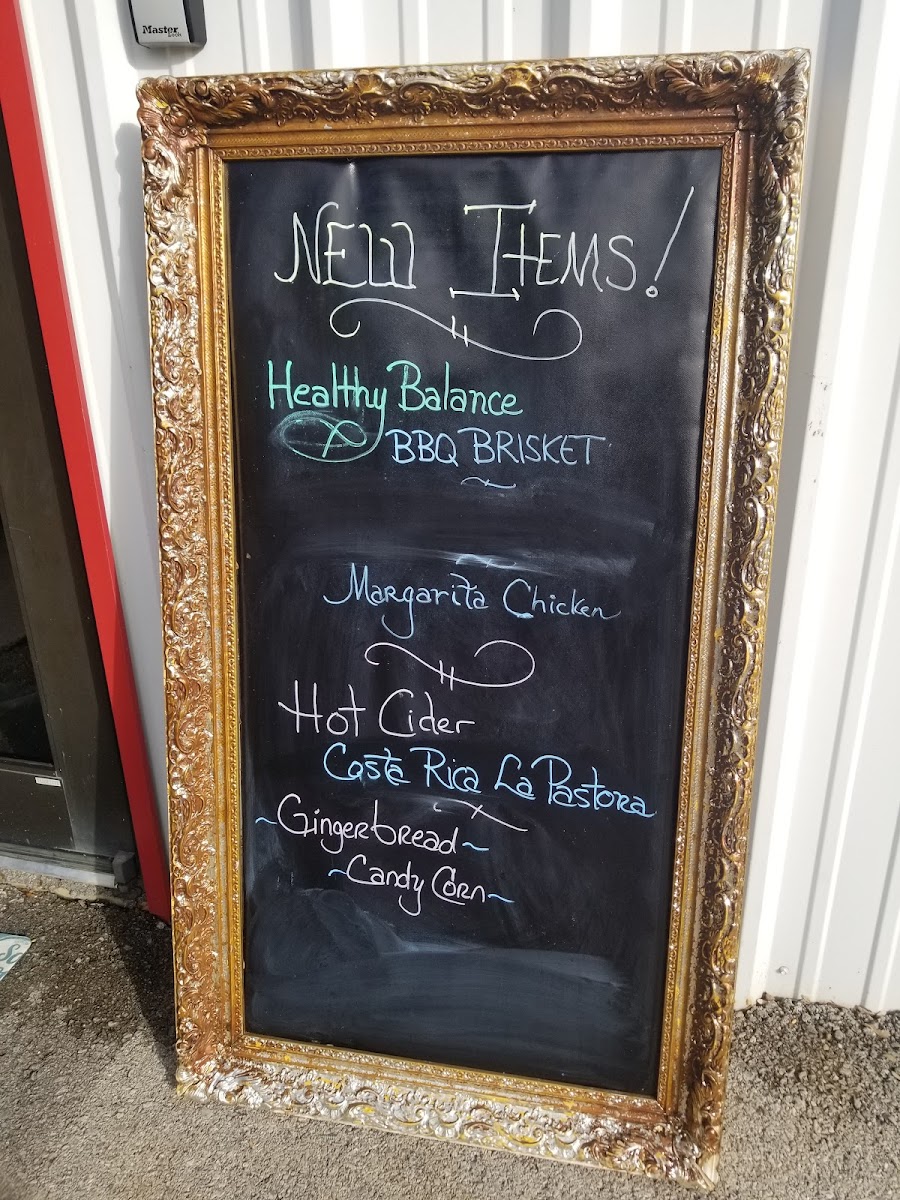 Master
Lock
NEW ITEMS!
Healthy Balance
BBQ BRISKET
Margarita Chicken
Hot Cider
Costa Rica La Pastora
~Gingerbread~
~Candy Corn~